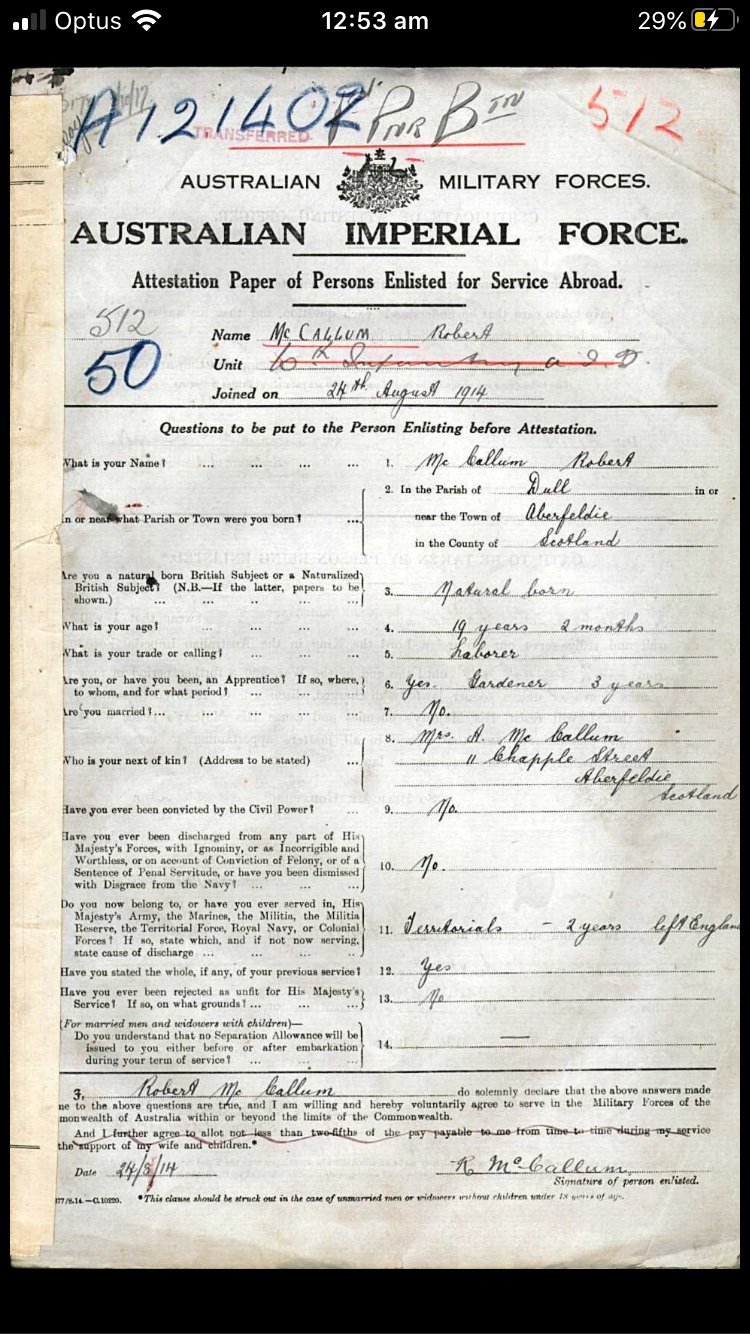 Optus 12:53 am 29%
A 121402 PNR BTN 512
TRANSFERRED
AUSTRALIAN MILITARY FORCES.
AUSTRALIAN IMPERIAL FORCE.
Attestation Paper of Persons Enlisted for Service Abroad.
512
50
Name McCALLUM Robert
Unit 6th Infantry
Joined on 24th August 1914
Questions to be put to the Person Enlisting before Attestation.
What is your Name? ... ... ... ... 1. McCallum Robert
2. In the Parish of Dull in or
In or near what Parish or Town were you born? ... near the Town of Aberfeldie
in the County of Scotland
Are you a natural born British Subject or a Naturalized
British Subject? (N.B.—If the latter, papers to be
shown.) ... ... ... ... ... 3. Natural born
What is your age? ... ... ... ... 4. 19 years 2 months
What is your trade or calling? ... ... ... 5. Laborer
Are you, or have you been, an Apprentice? If so, where,
to whom, and for what period? ... ... ... 6. Yes. Gardener 3 years
Are you married? ... ... ... ... ... 7. No.
8. Mrs. A. McCallum
Who is your next of kin? (Address to be stated) ... 11 Chapple Street
Aberfeldie
Scotland
Have you ever been convicted by the Civil Power? ... 9. No.
Have you ever been discharged from any part of His
Majesty's Forces, with Ignominy, or as Incorrigible and
Worthless, or on account of Conviction of Felony, or of a
Sentence of Penal Servitude, or have you been dismissed
with Disgrace from the Navy? ... ... ... 10. No.
Do you now belong to, or have you ever served in, His
Majesty's Army, the Marines, the Militia, the Militia
Reserve, the Territorial Force, Royal Navy, or Colonial
Forces? If so, state which, and if not now serving,
state cause of discharge ... ... ... ... 11. Territorials - 2 years left England
Have you stated the whole, if any, of your previous service? 12. Yes
Have you ever been rejected as unfit for His Majesty's
Service? If so, on what grounds? ... ... ... 13. No
(For married men and widowers with children)—
Do you understand that no Separation Allowance will be
issued to you either before or after embarkation
during your term of service? ... ... ... 14. —
I, Robert McCallum do solemnly declare that the above answers made
me to the above questions are true, and I am willing and hereby voluntarily agree to serve in the Military Forces of the
monwealth of Australia within or beyond the limits of the Commonwealth.
And I further agree to allot not less than two-fifths of the pay payable to me from time to time during my service
the support of my wife and children.*
Date 24/8/14 R McCallum
Signature of person enlisted.
177/8.14.—C.10220. *This clause should be struck out in the case of unmarried men or widowers without children under 18 years of age.